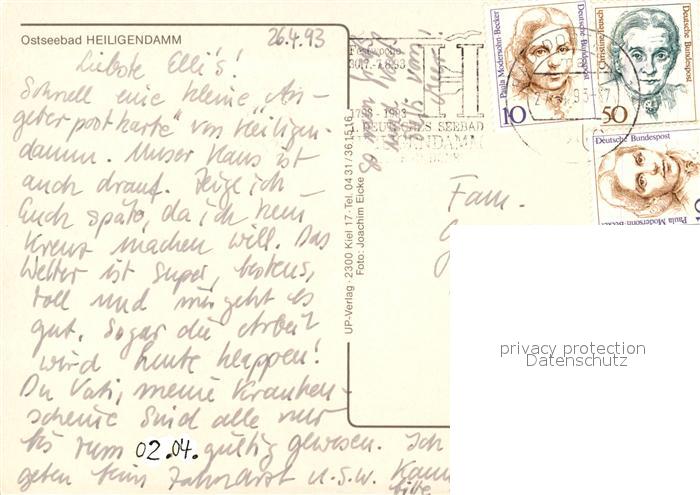 Ostseebad HEILIGENDAMM
26.4.93
Liebste Elli's!
Schnell eine kleine "An-
geberpostkarte" von Heiligen-
damm. Unser Haus ist
auch drauf. Zeige ich
Euch später, da ich kein
Kreuz machen will. Das
Wetter ist super, bestens,
toll und mir geht es
gut. Sogar die Arbeit
wird heute klappen!
Du Vati, meine Kranken-
scheine sind alle nur
bis zum 02.04. gültig gewesen. Ich
geben beim Zahnarzt u.s.w. Kann
bitte
UP-Verlag · 2300 Kiel 17 · Tel. 04 31 / 36 15 16
Foto: Joachim Eicke
Festwoche
30.7.-7.8.93
1793-1993
1. DEUTSCHES SEEBAD
Fam.
Paula Modersohn-Becker
Deutsche Bundespost
10
Christine Teusch
Deutsche Bundespost
50
Deutsche Bundespost
Paula Modersohn-Becker
privacy protection
Datenschutz